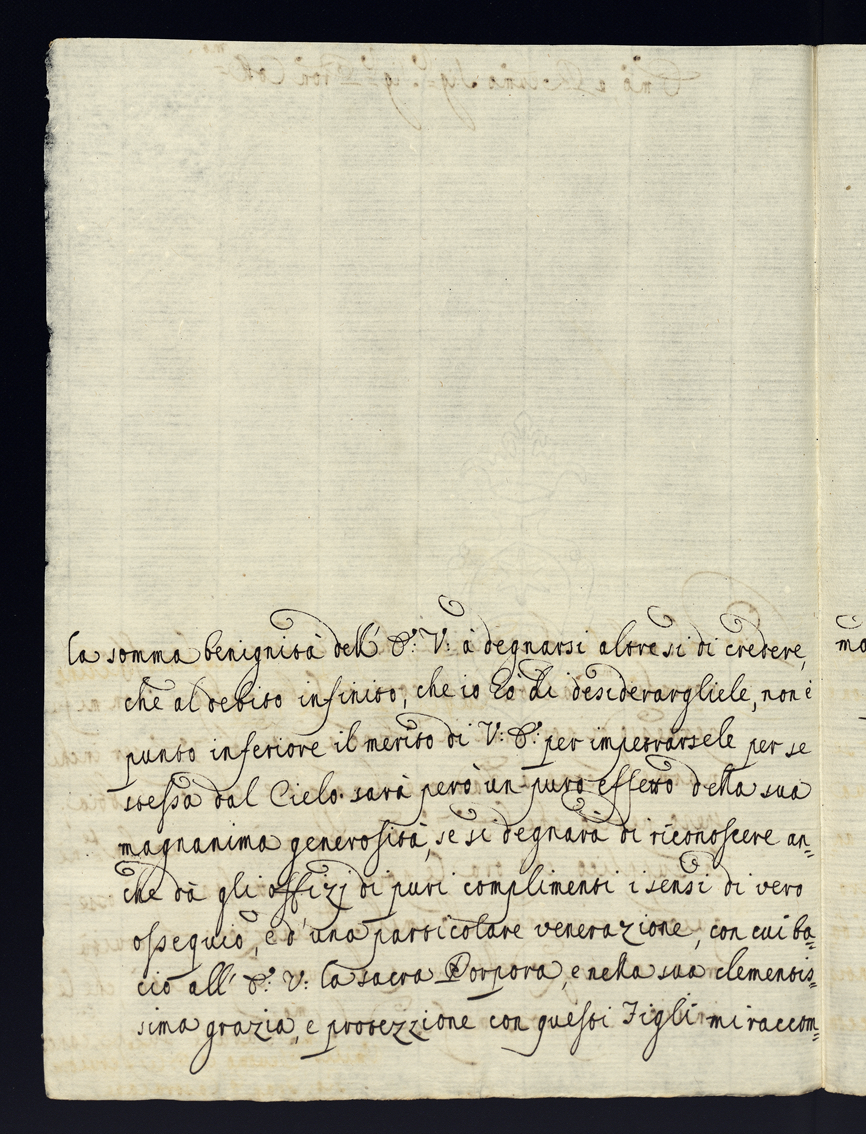 la somma benignità dell' E: V: à degnarsi altresi di credere,
che al debito infinito, che io ho di desiderargliele, non è
punto inferiore il merito di V: E: per impetrarsele per se
stessa dal Cielo. sarà però un puro effetto della sua
magnanima generosità, se si degnarà di riconoscere an=
che dà gli offizj di puri complimenti i sensi di vero
ossequio, e d'una particolare venerazione, con cui ba=
cio all' E: V: la sacra Porpora, e nella sua clementis=
sima grazia, e protezzione con questi Figli mi raccom=